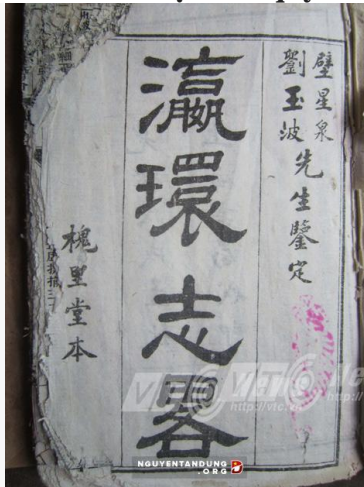 壁星泉
劉玉波
先生鑒定
瀛環志畧
槐里堂本
http://vtc.
http://vtc.
NGUYENTANDUNG
.ORG